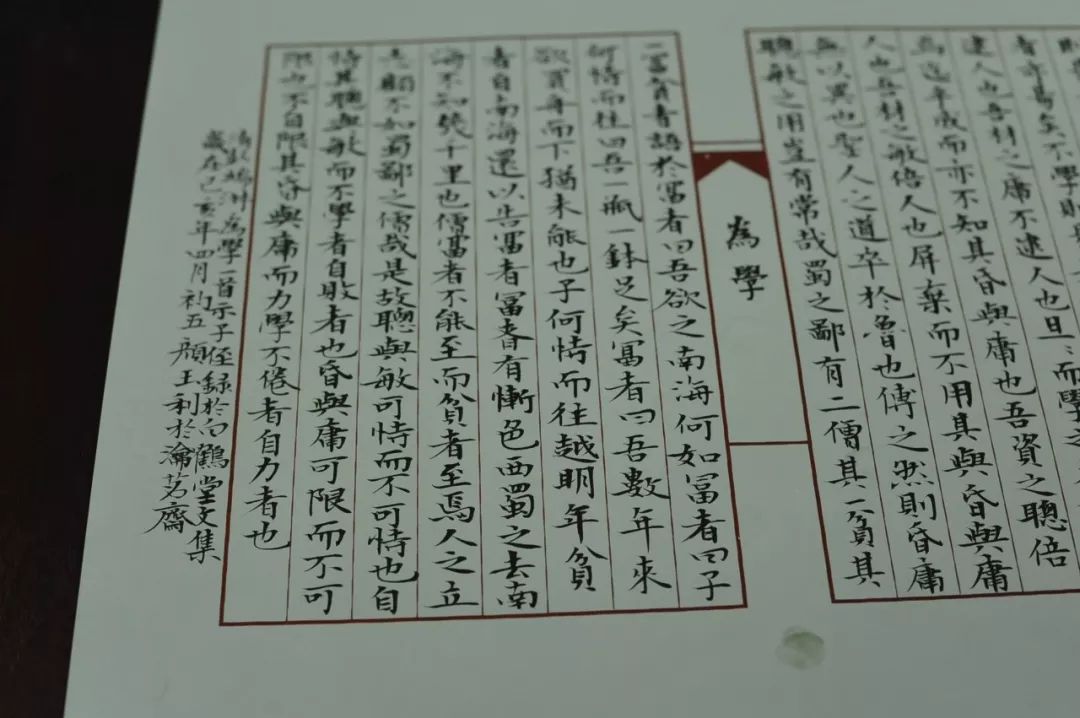 者亦易矣不學則
逮人也吾材之庸不逮人也旦〻而學之
焉迄乎成而亦不知其昏與庸也吾資之聰倍
人也吾材之敏倍人也屏棄而不用其與昏與庸
無以異也聖人之道卒於魯也傳之然則昏庸
聰敏之用豈有常哉蜀之鄙有二僧其一貧其
為學
二富貧者語於富者曰吾欲之南海何如富者曰子
何恃而往曰吾一瓶一鉢足矣富者曰吾數年來
欲買舟而下猶未能也子何恃而往越明年貧
者自南海還以告富者富者有慚色西蜀之去南
海不知幾千里也僧富者不能至而貧者至焉人之立
志顧不如蜀鄙之僧哉是故聰與敏可恃而不可恃也自
恃其聰與敏而不學者自敗者也昏與庸可限而不可
限也不自限其昏與庸而力學不倦者自力者也
清彭端淑為學一首示子侄錄於白鶴堂文集
歲在己亥年四月初五顏王利於瀹茗齋